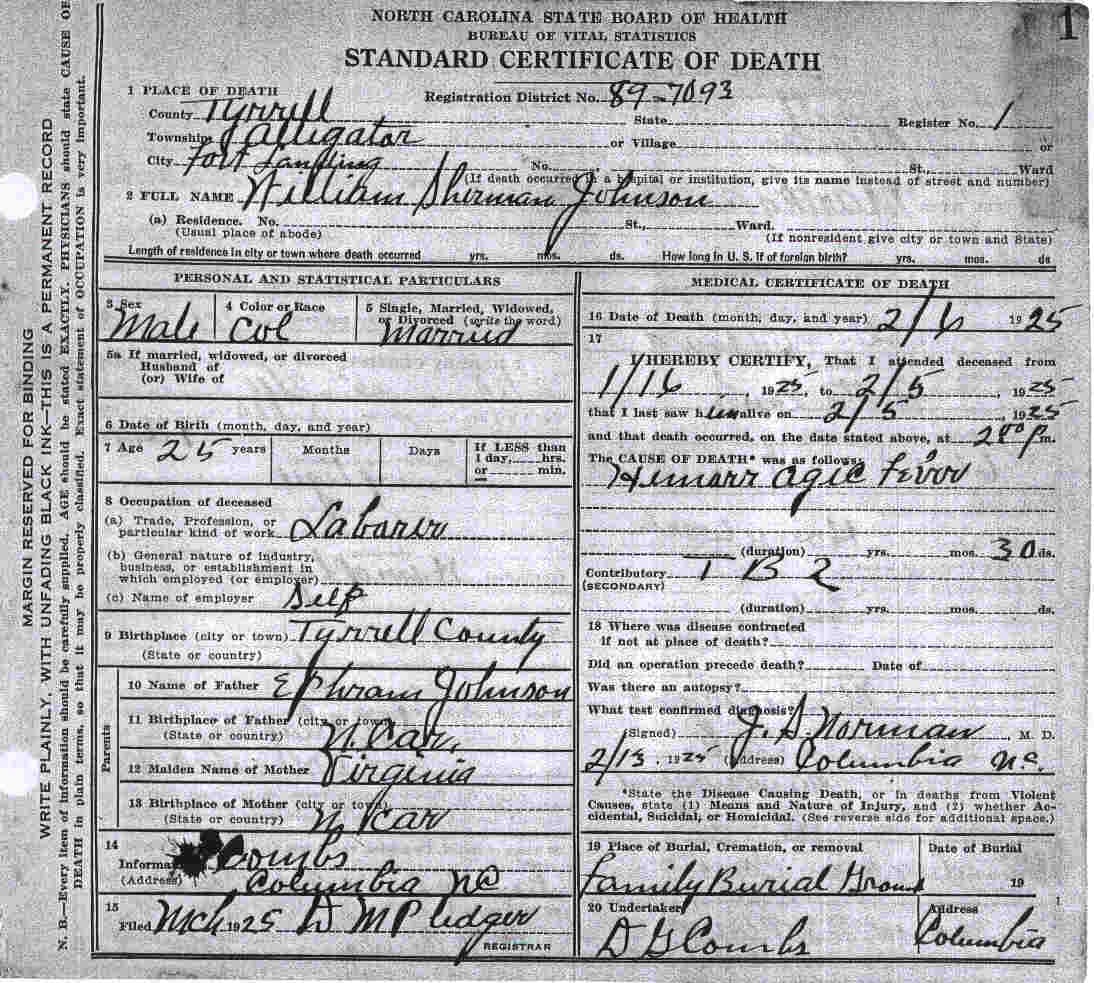 NORTH CAROLINA STATE BOARD OF HEALTH
BUREAU OF VITAL STATISTICS
STANDARD CERTIFICATE OF DEATH
1
1 PLACE OF DEATH
Registration District No. 89-7093
County Tyrrell State Register No. 1
Township Alligator or Village or
City Fort Landing No. St., Ward
(If death occurred in a hospital or institution, give its name instead of street and number)
2 FULL NAME William Sherman Johnson
(a) Residence. No. St., Ward.
(Usual place of abode) (If nonresident give city or town and State)
Length of residence in city or town where death occurred yrs. mos. ds. How long in U. S. if of foreign birth? yrs. mos. ds
PERSONAL AND STATISTICAL PARTICULARS
3 Sex 4 Color or Race 5 Single, Married, Widowed,
or Divorced (write the word)
Male Col Married
5a If married, widowed, or divorced
Husband of
(or) Wife of
6 Date of Birth (month, day, and year)
7 Age 25 years Months Days If LESS than
1 day, hrs.
or min.
8 Occupation of deceased
(a) Trade, Profession, or
particular kind of work Laborer
(b) General nature of industry,
business, or establishment in
which employed (or employer)
(c) Name of employer Self
9 Birthplace (city or town) Tyrrell County
(State or country)
Parents
10 Name of Father Ephram Johnson
11 Birthplace of Father (city or town)
(State or country) N. Car.
12 Maiden Name of Mother Virginia
13 Birthplace of Mother (city or town)
(State or country) N Car
14
Informa Combs
(Address) Columbia NC
15
Filed Mch 1925 D M Pledger
REGISTRAR
MEDICAL CERTIFICATE OF DEATH
16 Date of Death (month, day, and year) 2/6 1925
17
I HEREBY CERTIFY, That I attended deceased from
1/16, 1925, to 2/5, 1925
that I last saw him alive on 2/5, 1925
and that death occurred, on the date stated above, at 2 00 p m.
The CAUSE OF DEATH* was as follows:
Himarr agic Fevor
(duration) yrs. mos. 30 ds.
Contributory T B 2
(SECONDARY)
(duration) yrs. mos. ds.
18 Where was disease contracted
if not at place of death?
Did an operation precede death? Date of
Was there an autopsy?
What test confirmed diagnosis?
(Signed) J. S. Norman, M. D.
2/13, 1925 (Address) Columbia N.C.
*State the Disease Causing Death, or in deaths from Violent
Causes, state (1) Means and Nature of Injury, and (2) whether Ac-
cidental, Suicidal, or Homicidal. (See reverse side for additional space.)
19 Place of Burial, Cremation, or removal Date of Burial
Family Burial Ground 19
20 Undertaker Address
D G Combs Columbia
MARGIN RESERVED FOR BINDING
WRITE PLAINLY, WITH UNFADING BLACK INK—THIS IS A PERMANENT RECORD
N. B.—Every item of information should be carefully supplied. AGE should be stated EXACTLY. PHYSICIANS should state CAUSE OF
DEATH in plain terms, so that it may be properly classified. Exact statement of OCCUPATION is very important.